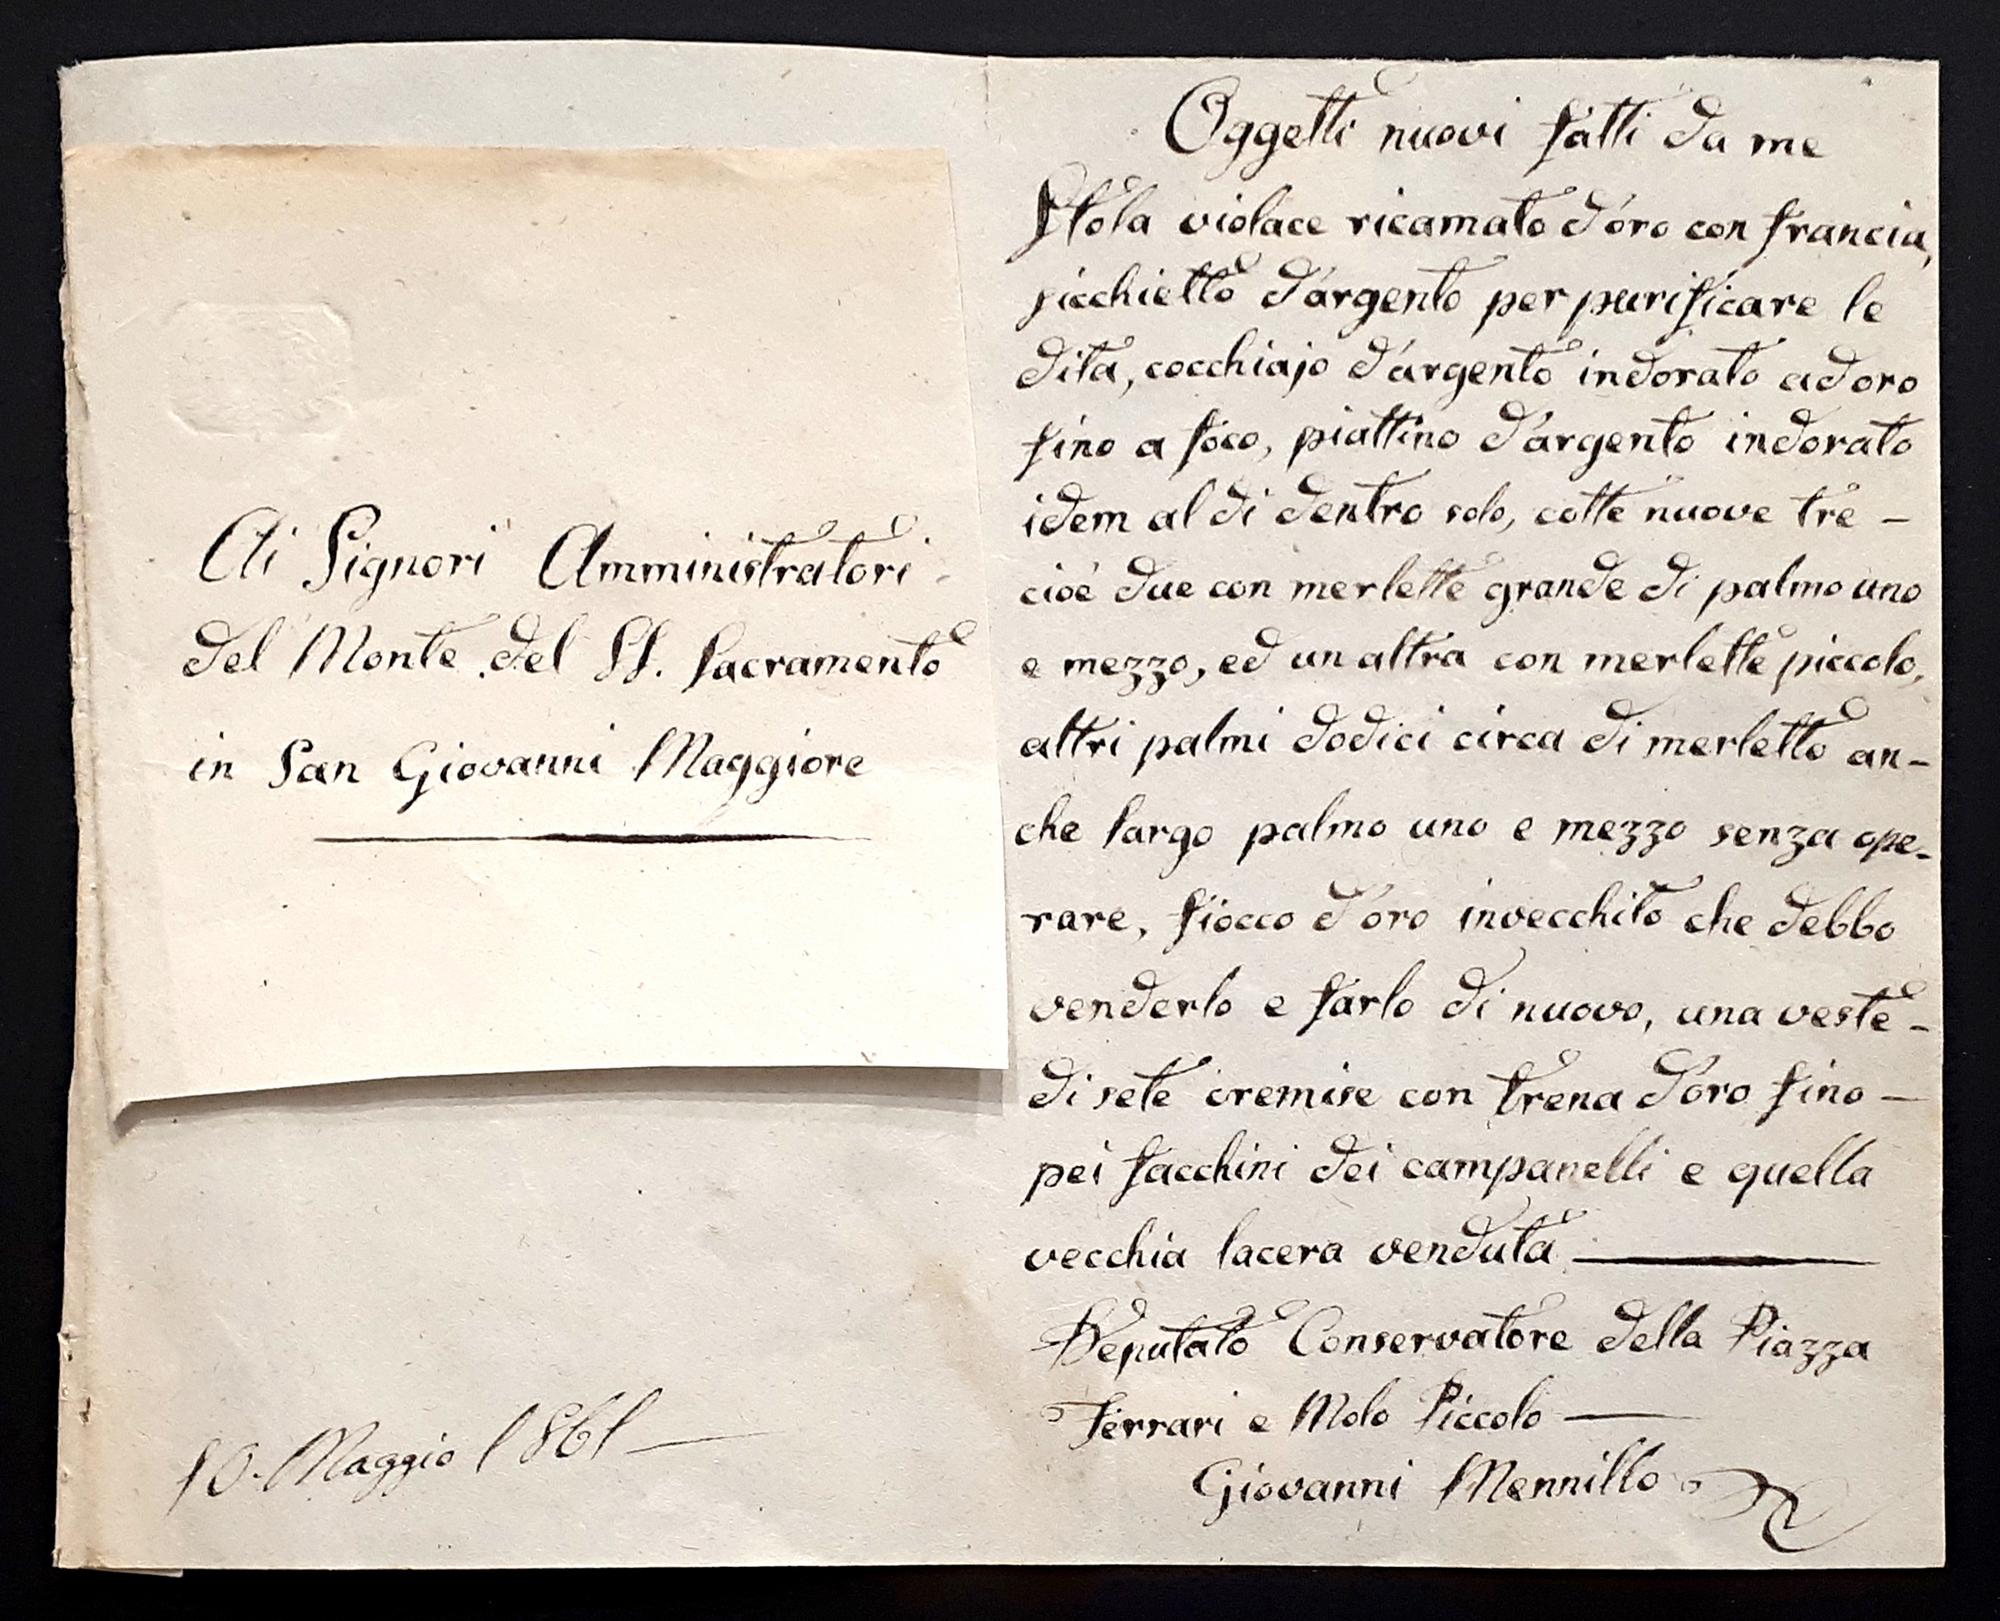 Ai Signori Amministratori
del Monte del SS. Sacramento
in San Giovanni Maggiore
10. Maggio 1861 —
Oggetti nuovi fatti da me
Stola violace ricamato d'oro con francia,
sicchietto d'argento per purificare le
dita, cocchiajo d'argento indorato ad oro
fino a foco, piattino d'argento indorato
idem al di dentro solo, cotte nuove tre –
cioè due con merlette grande di palmo uno
e mezzo, ed un altra con merlette piccolo,
altri palmi dodici circa di merletto an-
che largo palmo uno e mezzo senza ope-
rare, fiocco d'oro invecchito che debbo
venderlo e farlo di nuovo, una veste –
di sete cremise con trena d'oro fino –
pei facchini dei campanelli e quella
vecchia lacera venduta —
Deputato Conservatore della Piazza
Ferrari e Molo Piccolo —
Giovanni Mennillo